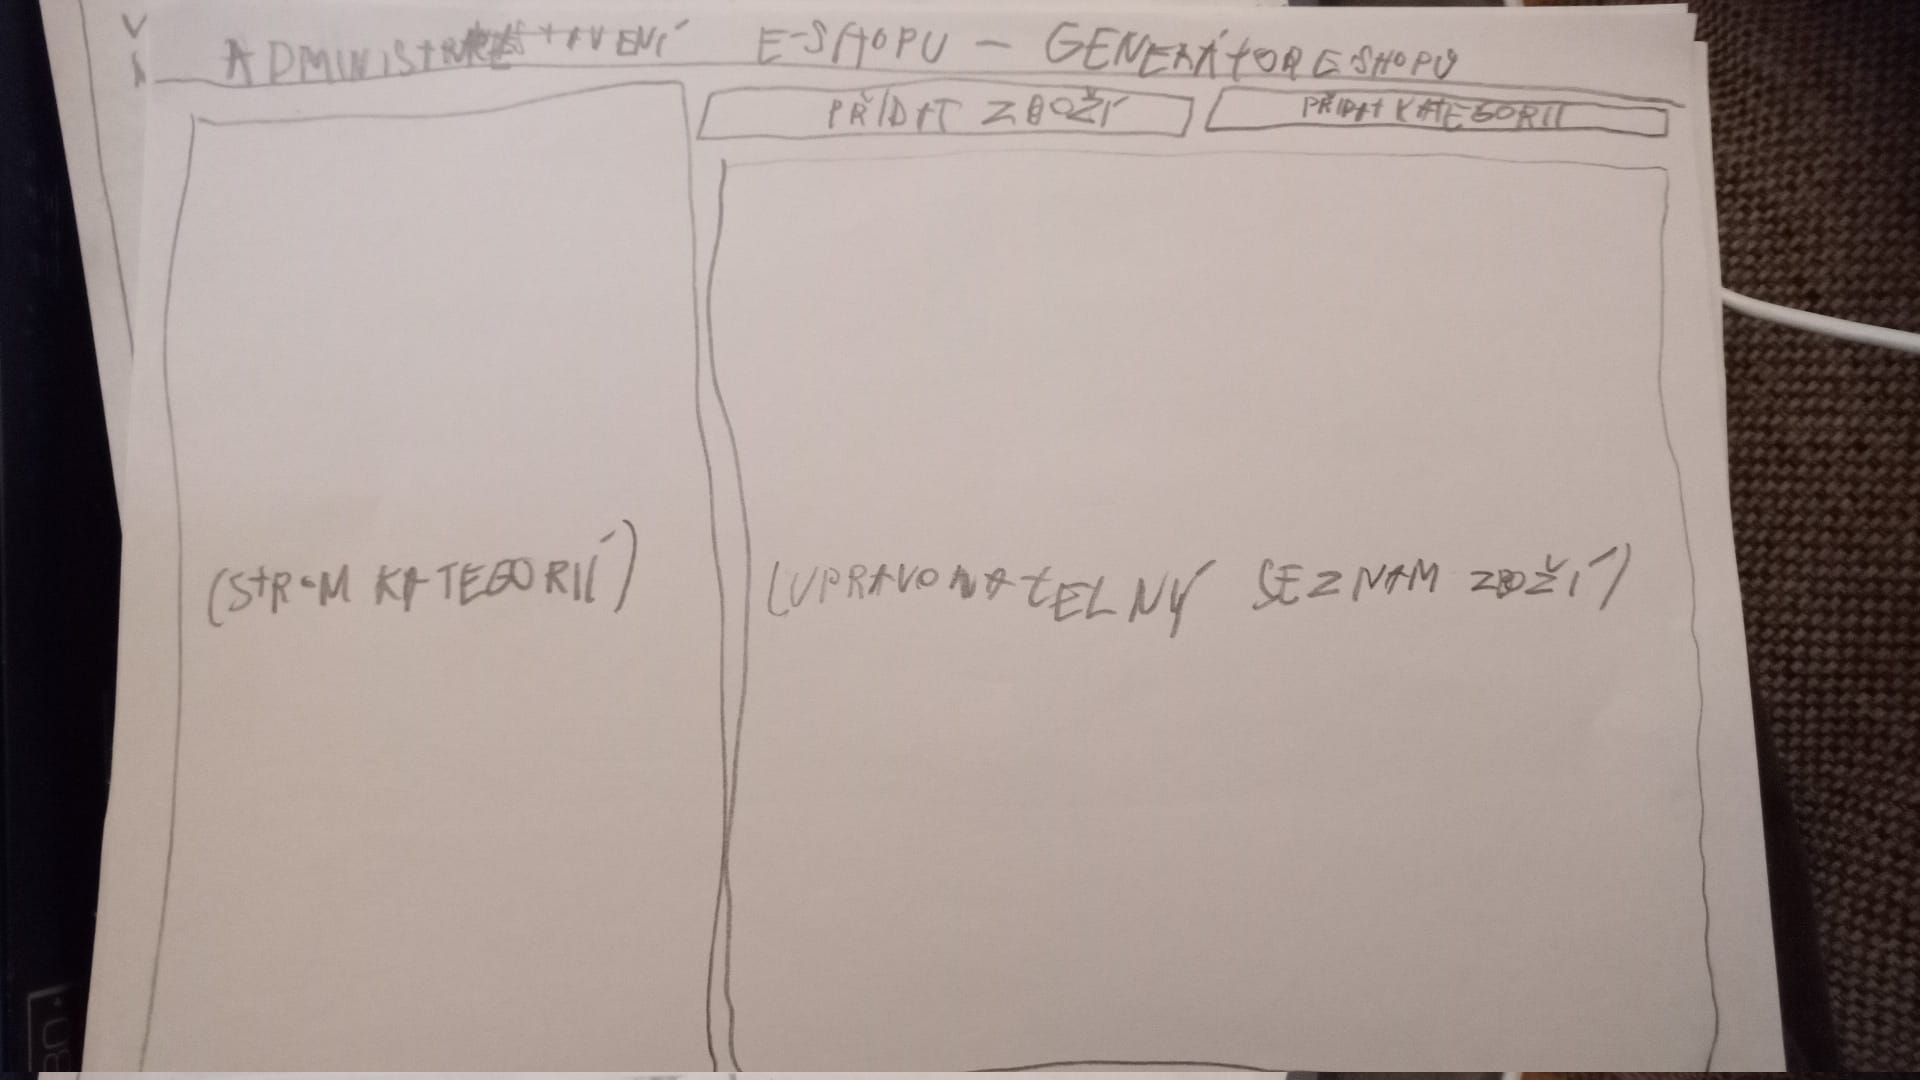 NASTAVENÍ E-SHOPU - GENERÁTOR ESHOPU
PŘIDAT ZBOŽÍ
PŘIDAT KATEGORII
(STROM KATEGORIÍ)
(UPRAVOVATELNÝ SEZNAM ZBOŽÍ)